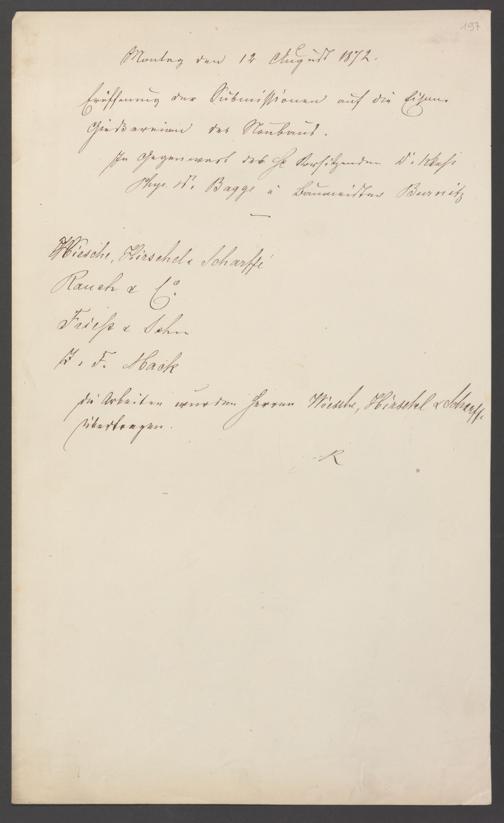 197
Montag den 12 August 1872.
Eröffnung der Submissionen auf die Eisen-
Giessereien des Neubaus.
In Gegenwart des H. Vorsitzenden Dr.
Dr. Bagge u Baumeister Burnitz
—
Wiesche, Hirschel & Scharffe
Rauch & Co.
Friess & Sohn
J. F. Mack
Die Arbeiten wurden Herren Wiesche, Hirschel & Scharffe
übertragen.
R